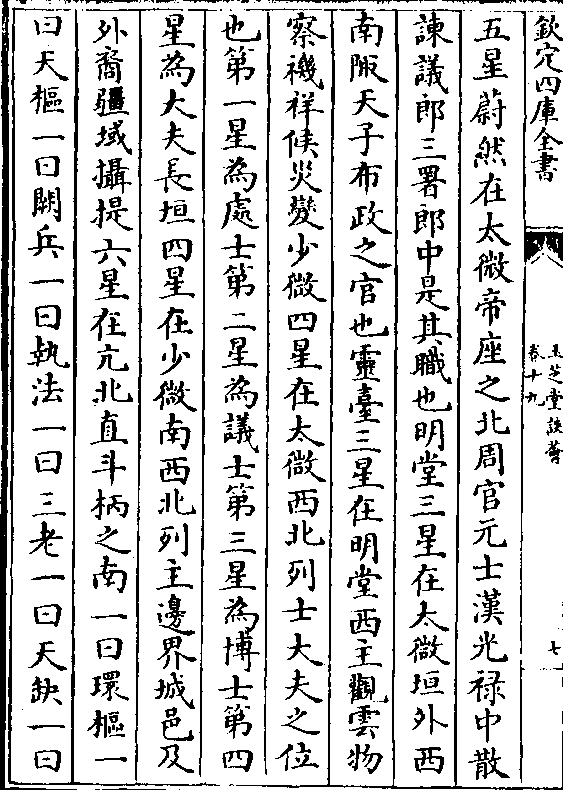 欽定四庫全書
玉芝堂談薈
卷十九
七
五星蔚然在太微帝座之北周官元士漢光禄中散
諫議郎三署郎中是其職也明堂三星在太微垣外西
南陬天子布政之官也靈臺三星在明堂西主觀雲物
察禨祥候災變少微四星在太微西北列士大夫之位
也第一星為處士第二星為議士第三星為博士第四
星為大夫長垣四星在少微南西北列主邊界城邑及
外裔疆域攝提六星在亢北直斗柄之南一曰環樞一
曰天樞一曰闕兵一曰執法一曰三老一曰天缺一曰